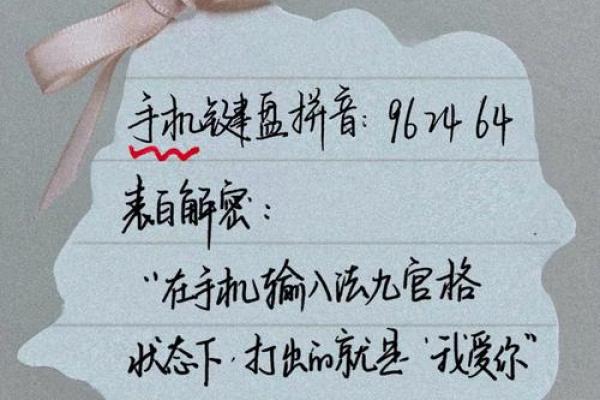 手机键盘拼音：962464
表白解密：
“在手机输入法九宫格
状态下，打出的就是“我爱你”